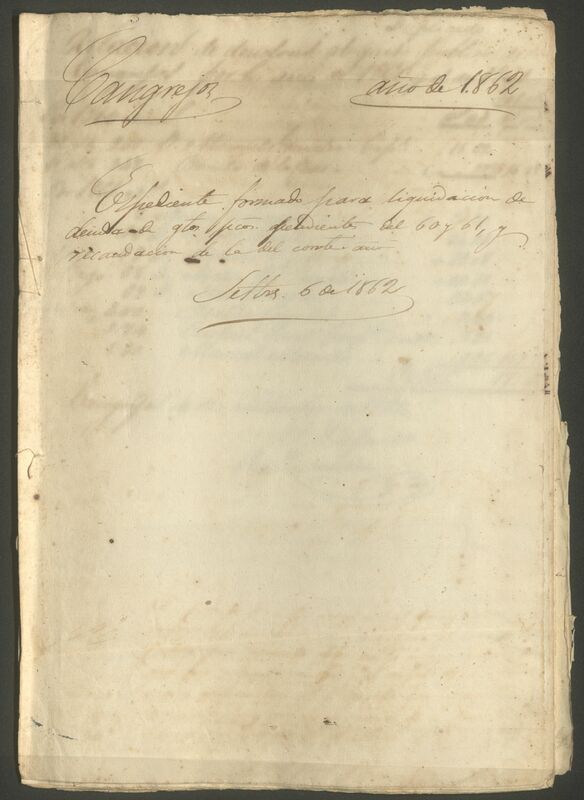 Cangrejos año de 1862
Espediente formado para liquidacion de
deuda de gtos pcos pendientes del 60 y 61, y
recaudacion de la del corrte año
Setbre 6 de 1862